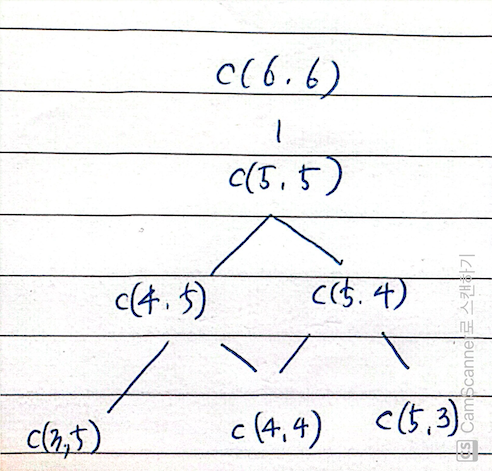 C(6.6)
C(5,5)
C(4.5) C(5.4)
C(3,5) C(4,4) C(5,3)
CS CamScanner로 스캔하기